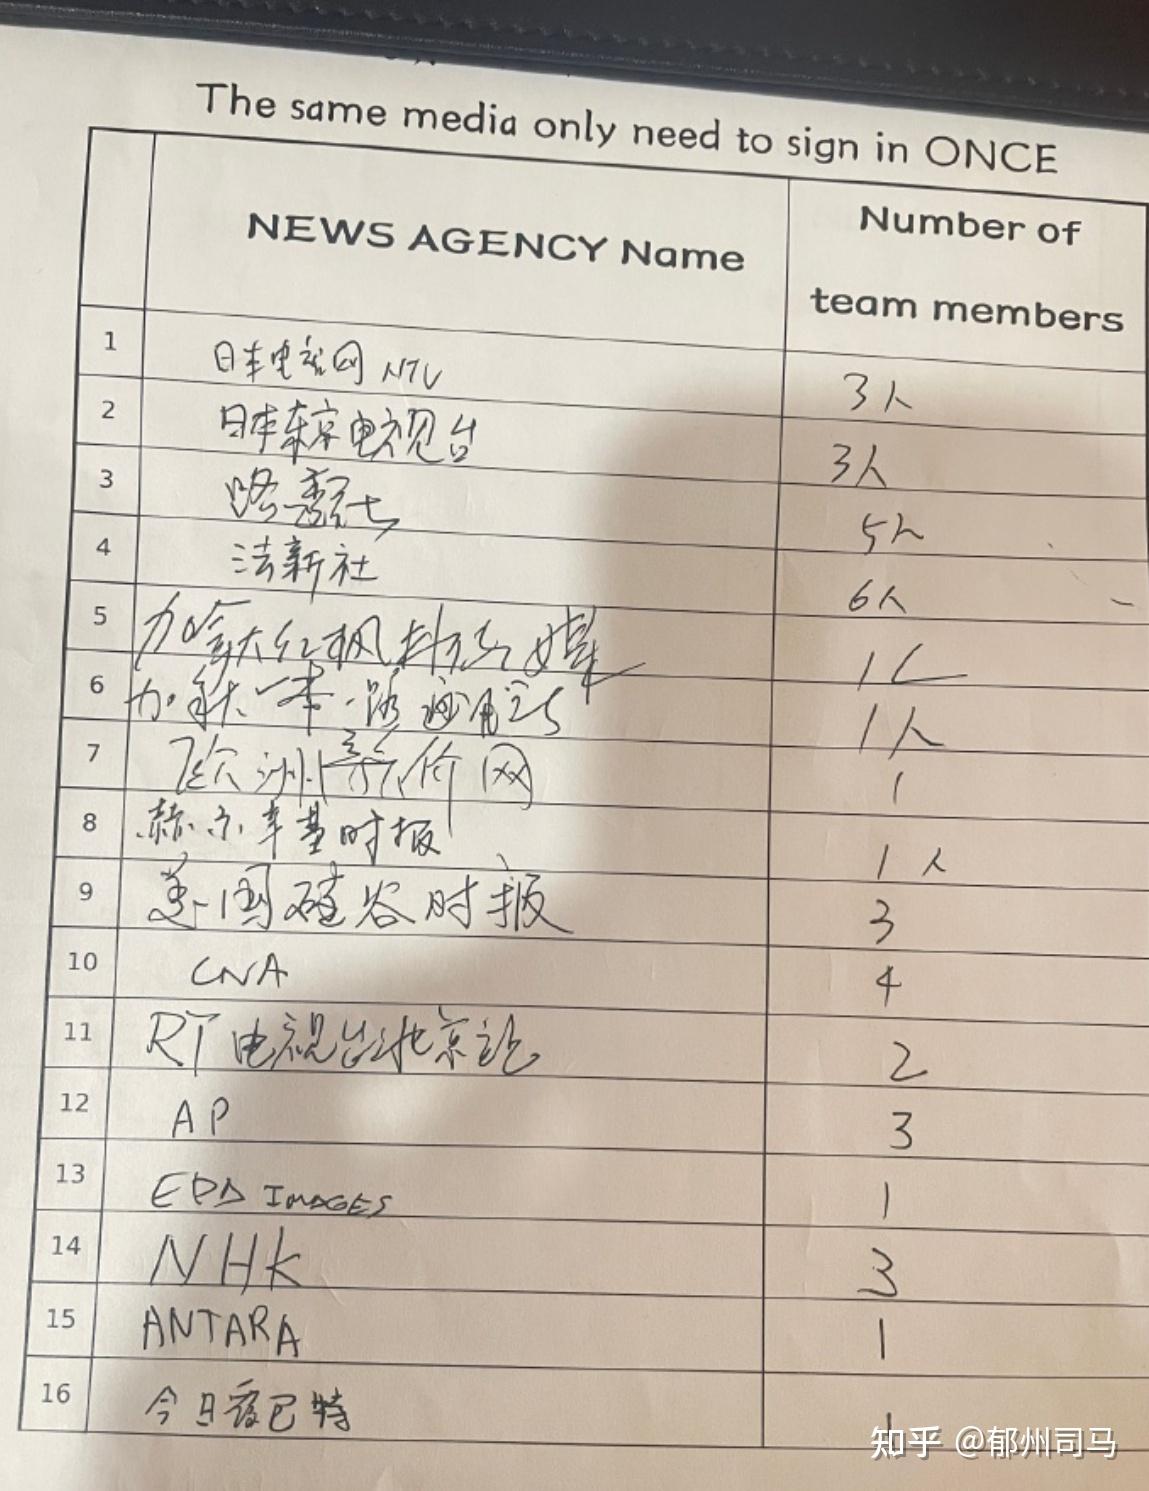 The same media only need to sign in ONCE
NEWS AGENCY Name
Number of
team members
1 日本电视网 NTV 3人
2 日本东京电视台 3人
3 路透社 5人
4 法新社 6人
5 加拿大红枫 1人
6 加拿大一带一路 1人
7 欧洲 网 1
8 赫尔辛基时报 1人
9 美国硅谷时报 3
10 CNA 4
11 RT电视台北京站 2
12 AP 3
13 IMAGES 1
14 NHK 3
15 ANTARA 1
16 今日 巴特
知乎 @郁州司马